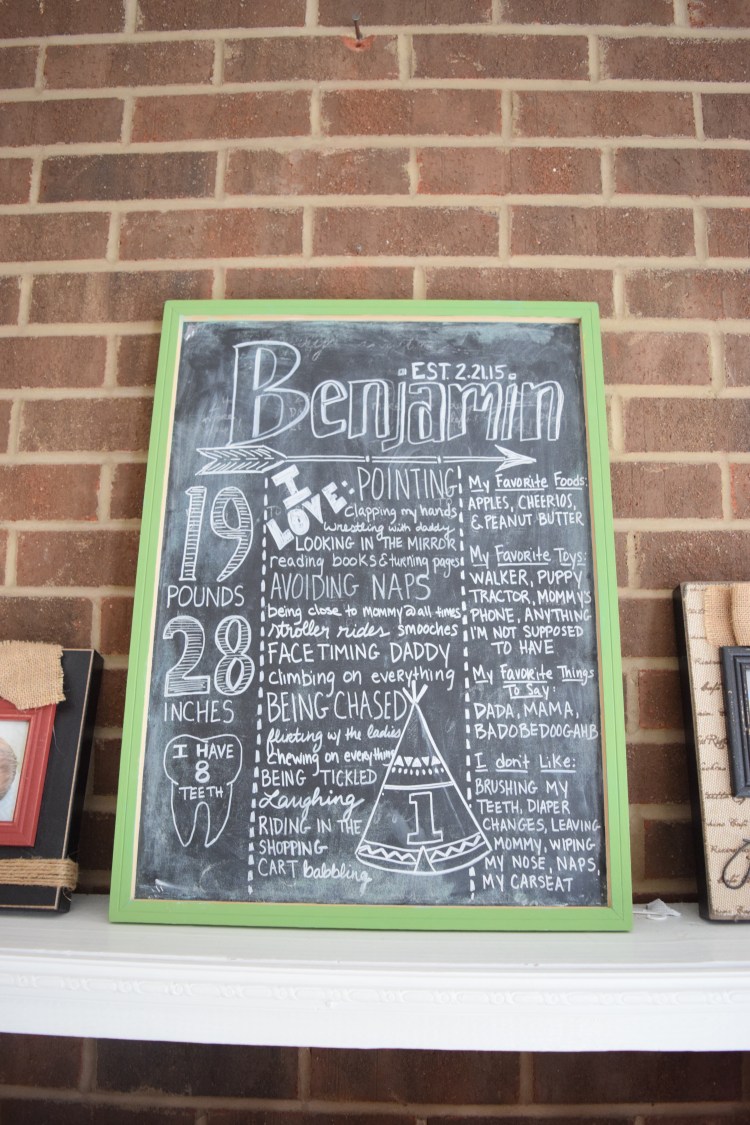 EST. 2.21.15
Benjamin
19
POUNDS
28
INCHES
I HAVE
8
TEETH
I
LOVE:
POINTING
clapping my hands
wrestling with daddy
LOOKING IN THE MIRROR
reading books & turning pages
AVOIDING NAPS
being close to mommy @ all times
stroller rides smooches
FACETIMING DADDY
climbing on everything
BEING CHASED
flirting w/ the ladies
chewing on everything
BEING TICKLED
Laughing
RIDING IN THE
SHOPPING
CART babbling
1
My Favorite Foods:
APPLES, CHEERIOS,
& PEANUT BUTTER
My Favorite Toys:
WALKER, PUPPY
TRACTOR, MOMMY'S
PHONE, ANYTHING
I'M NOT SUPPOSED
TO HAVE
My Favorite Things
To Say:
DADA, MAMA,
BADOBEDOOGAHB
I don't Like:
BRUSHING MY
TEETH, DIAPER
CHANGES, LEAVING
MOMMY, WIPING
MY NOSE, NAPS,
MY CARSEAT